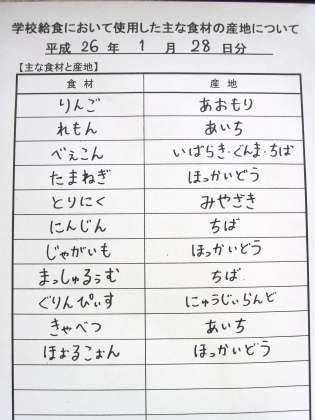 学校給食において使用した主な食材の産地について
平成 26 年 1 月 28 日分
【主な食材と産地】
食材 産地
りんご あおもり
れもん あいち
べぇこん いばらき・ぐんま・ちば
たまねぎ ほっかいどう
とりにく みやざき
にんじん ちば
じゃがいも ほっかいどう
まっしゅるぅむ ちば
ぐりんぴぃす にゅうじぃらんど
きゃべつ あいち
ほぉるこぉん ほっかいどう